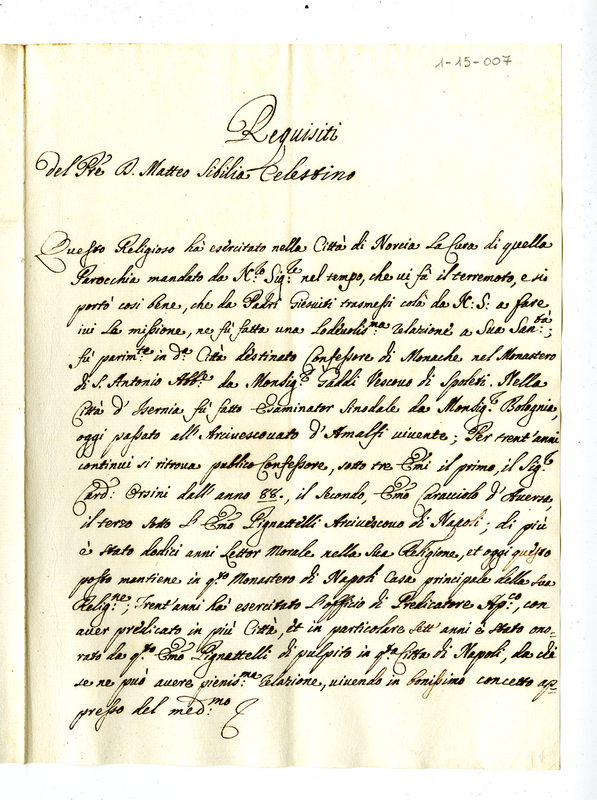 1-15-007
Requisiti
del Pre D. Matteo Sibilia Celestino
Questo Religioso hà esercitato nella Città di Norcia La Cura di quella
Parocchia mandato da N.ro Sig.re nel tempo, che vi fù il terremoto, e si
portò cosi bene, che da Padri Giesuiti trasmessi colà da N: S: a fare
iui La missione, ne fù fatta una Lodevolis.ma Relazione a Sua San.tà;
fù parim.te in d.a Città destinato Confessore di Monache nel Monastero
di S. Antonio Abb.e da Monsig.r Gaddi Vescovo di Spoleti. Nella
Città d'Isernia fù fatto Esaminator Sinodale da Monsig.r Bolognia,
oggi passato all'Arcivescovato d'Amalfi vivente; Per trent'anni
continui si ritrova publico Confessore, sotto tre Emi il primo, il Sig.r
Card: Orsini dall'anno 88., il Secondo, Emo Caracciolo d'Aversa,
il terzo sotto l'Emo Pignattelli Arcivescovo di Napoli; di più
è stato dodici anni Lettor Morale nella Sua Religione, et oggi questo
posto mantiene in q.sto Monastero di Napoli Casa principale della sua
Relig.ne; Trent'anni hà esercitato l'officio di Predicatore Ap.co, con
aver predicato in più Città, et in particolare sett'anni è stato ono-
rato da q.sto Emo Pignattelli di pulpito in q.sta Città di Napoli, da chi
se ne può avere pienis.ma Relazione, vivendo in bonissimo concetto ap-
presso del med.mo